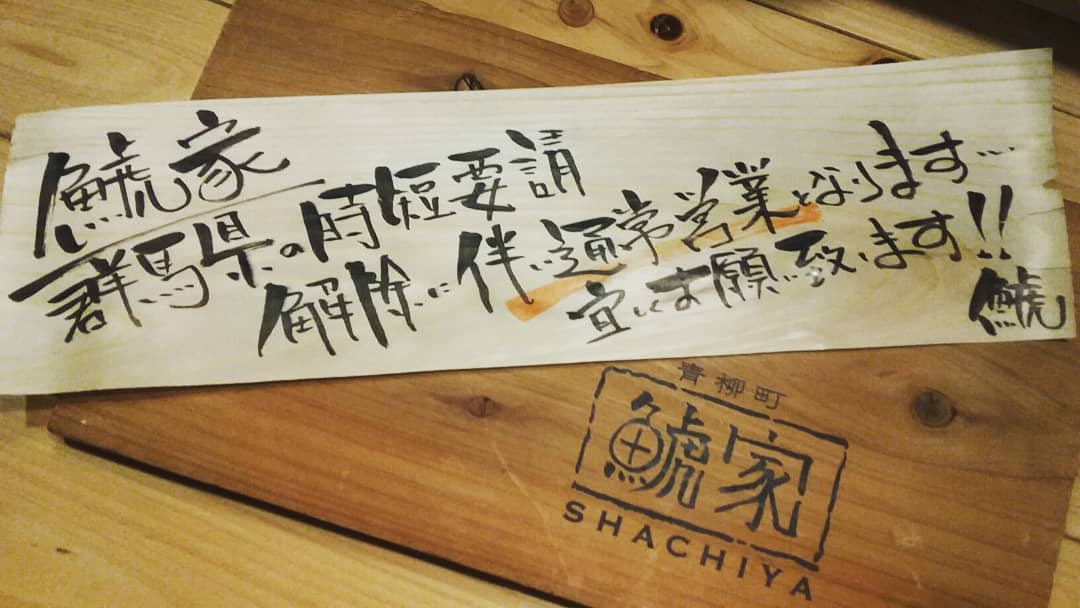 鯱家
群馬県の時短要請
解除に伴い通常営業となります…
宜しくお願い致します!!
鯱
青柳町
鯱家
SHACHIYA